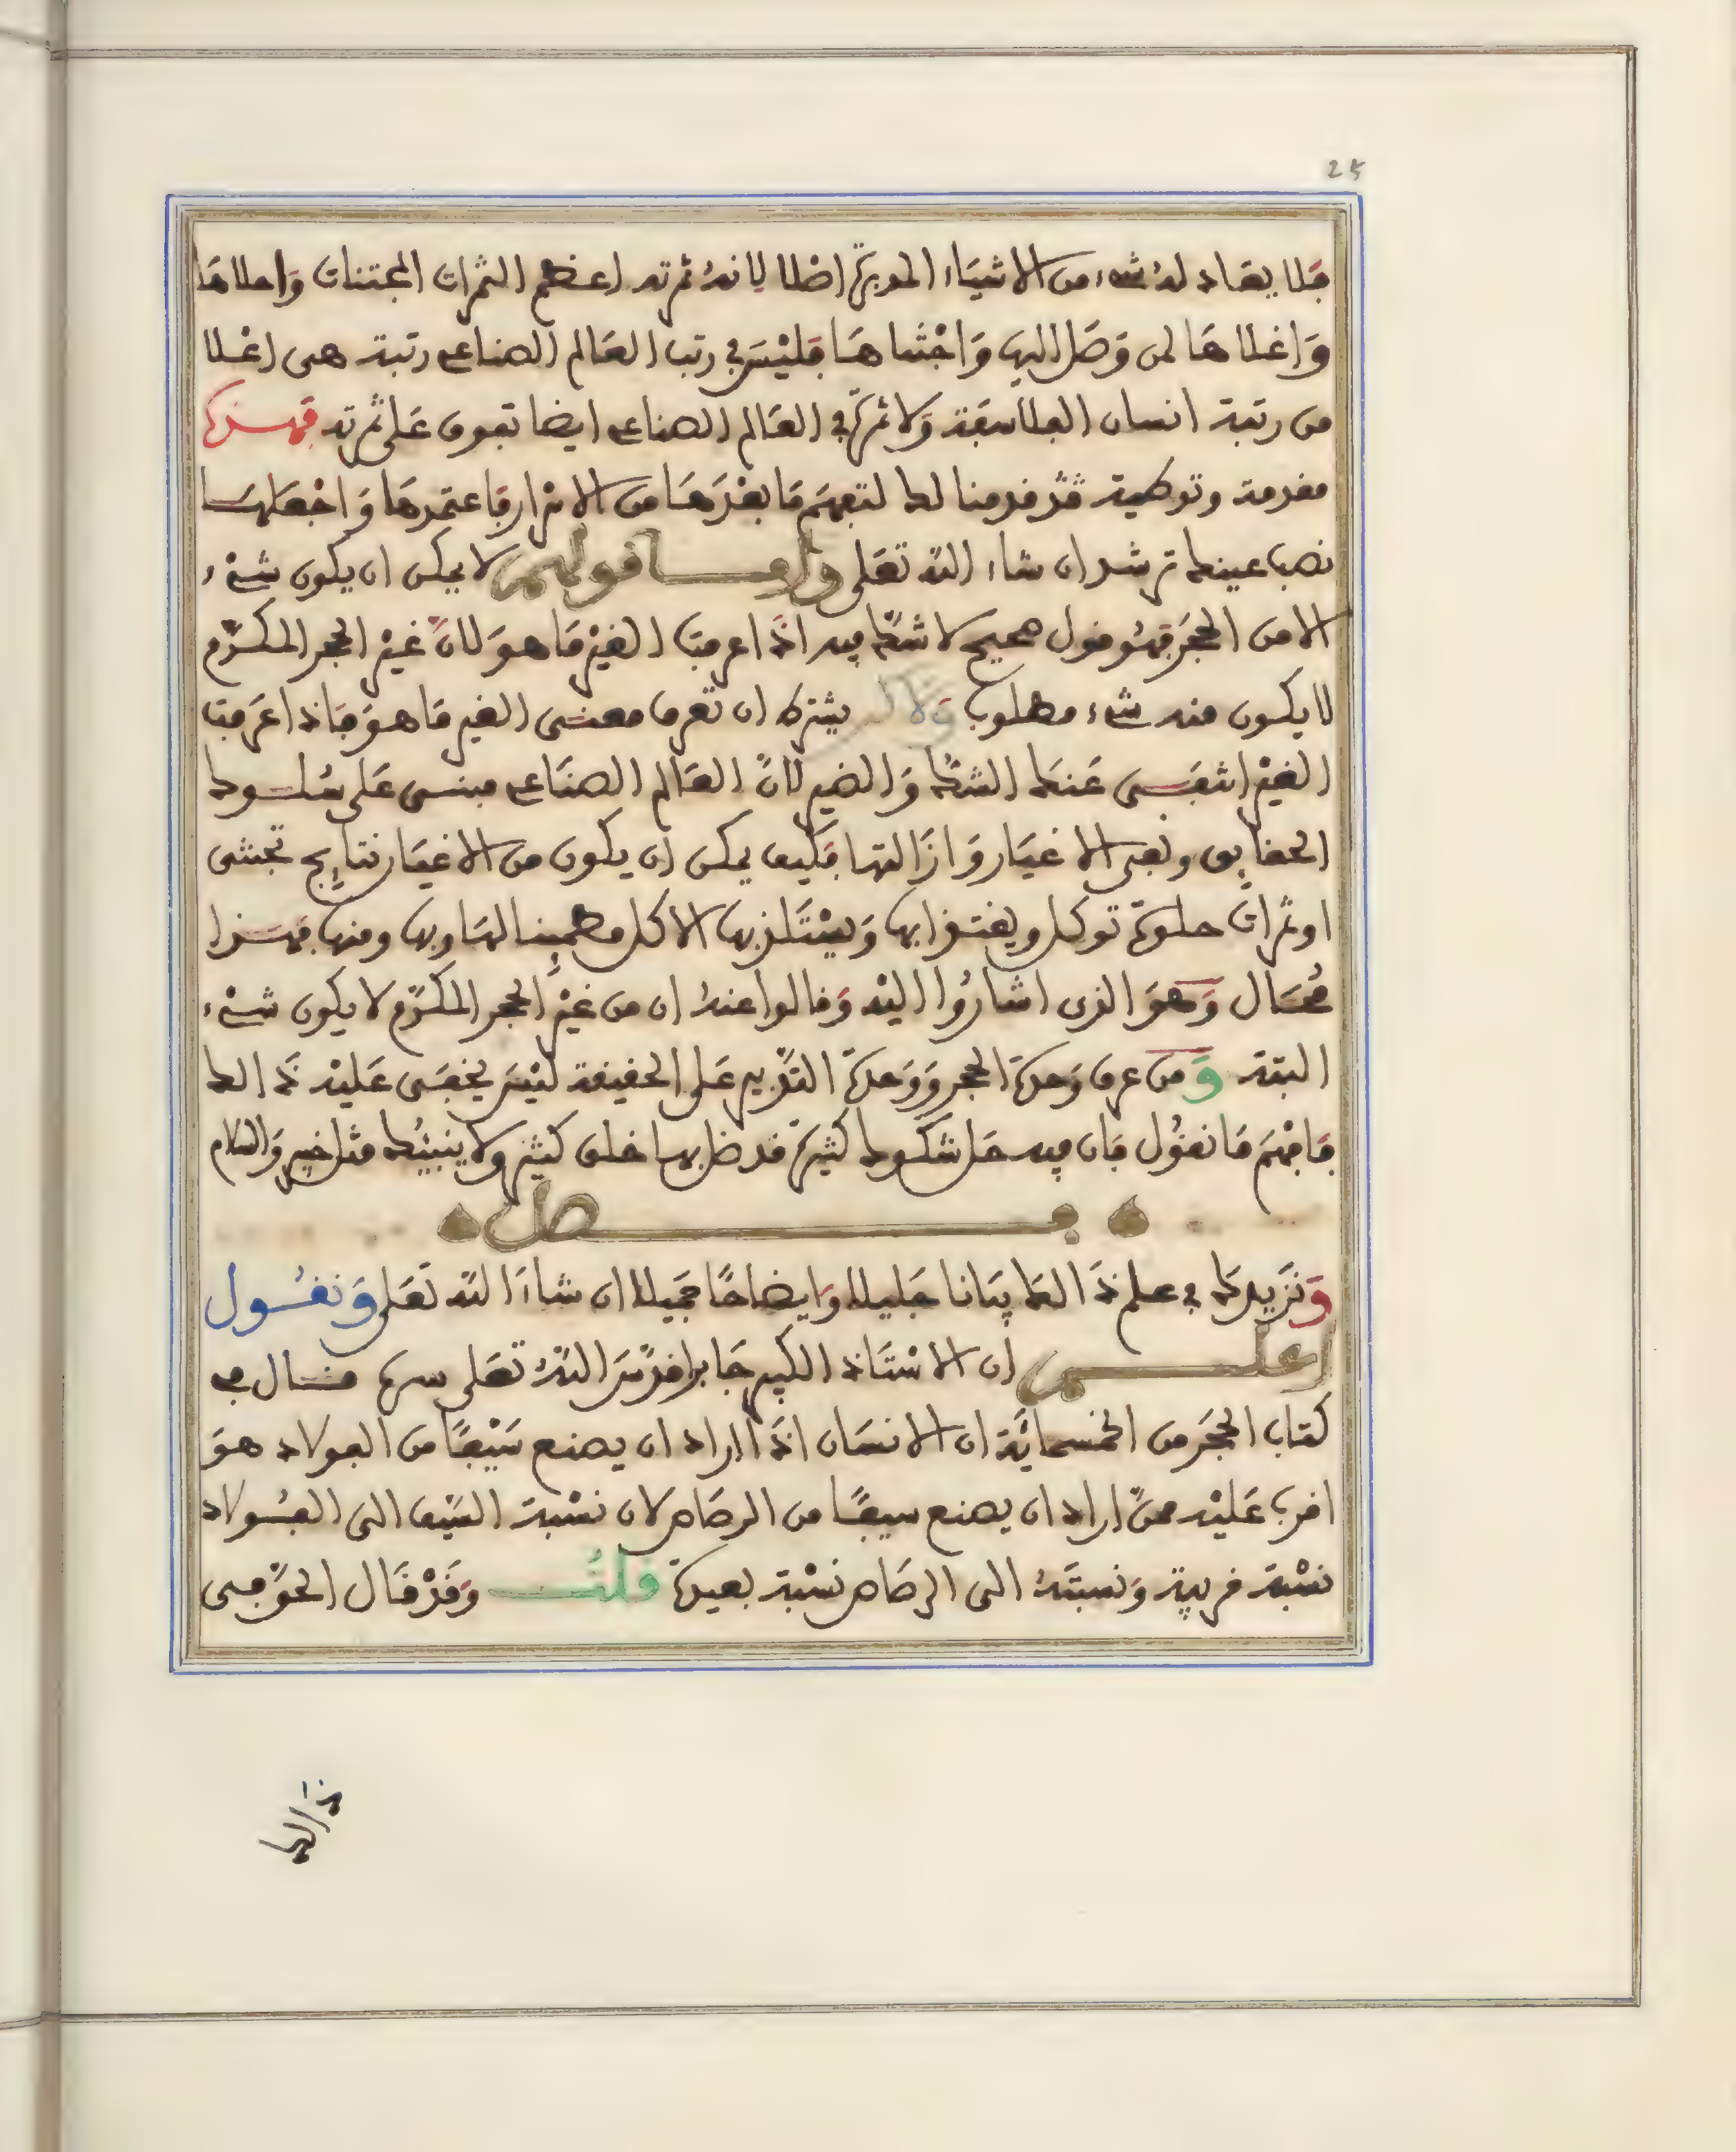 25
فلا يعادله شيء من الاشياء المدبرة اصلا لانه ثمرته اعظم الثمرات المجتنات واحلاها
واغلاها لمن وصل اليها واجتناها فليس في رتب العالم الصناعي رتبة هى اعلا
من رتبة انسان الفلاسفة ولا ثمرة في العالم الصناعي ايضا تفوق على ثمرته فهذه
مقدمة وتوطية قد قدمنا لك لتفهم ما بعدها من الاسرار فاعتمدها واجعلها
نصب عينيك ترشد ان شاء الله تعلى واما قولهم لا يمكن ان يكون شيء
الا من الحجر فهو قول صحيح لا شك فيه اذا عرفت الغير ما هو لان غير الحجر المكرم
لا يكون منه شيء مطلوب يشترط ان تعرف معنى الغير ما هو فاذا عرفت
الغير انتفى عنك الشك والضير لان العالم الصناعي مبنى على سلوك
الحقايق ونفى الاغيار وازالتها فكيف يمكن ان يكون من الاغيار نتايج تجتنى
او ثمرات حلوة توكل ويغتذا بها ويستلذ بها الاكل مطمينا لها وبها ومنها فهذا
محال وهو الذى اشاروا اليه وقالوا عنه ان من غير الحجر المكرم لا يكون شيء
البتة ومن عرف وحدة الحجر ووحدة التدبير على الحقيقة ليس يخفى عليه ذالك
فافهم ما نقول فان فيه حل شكوك كثيرة قد ضل بها خلق كثير ولا ينبيك مثل خبير والسلام
فصل
ونزيدك في علم ذالك بيانا جليلا وايضاحا جميلا ان شاء الله تعلى ونقول
اعلم ان الاستاذ الكبير جابرا قدس الله تعلى سره قال في
كتاب الحجر من الخمسماية ان الانسان اذا اراد ان يصنع سيفا من الفولاد هو
اقرب عليه ممن اراد ان يصنع سيفا من الرصاص لان نسبة السيف الى الفولاد
نسبة قريبة ونسبته الى الرصاص نسبة بعيدة قلت وقد قال الحق في
ذالك